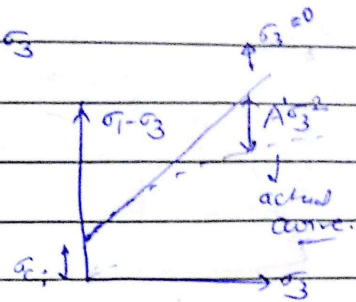 σ3
σ3 = 0
σ1-σ3
A'σ3²
actual
curve.
σci
σ3